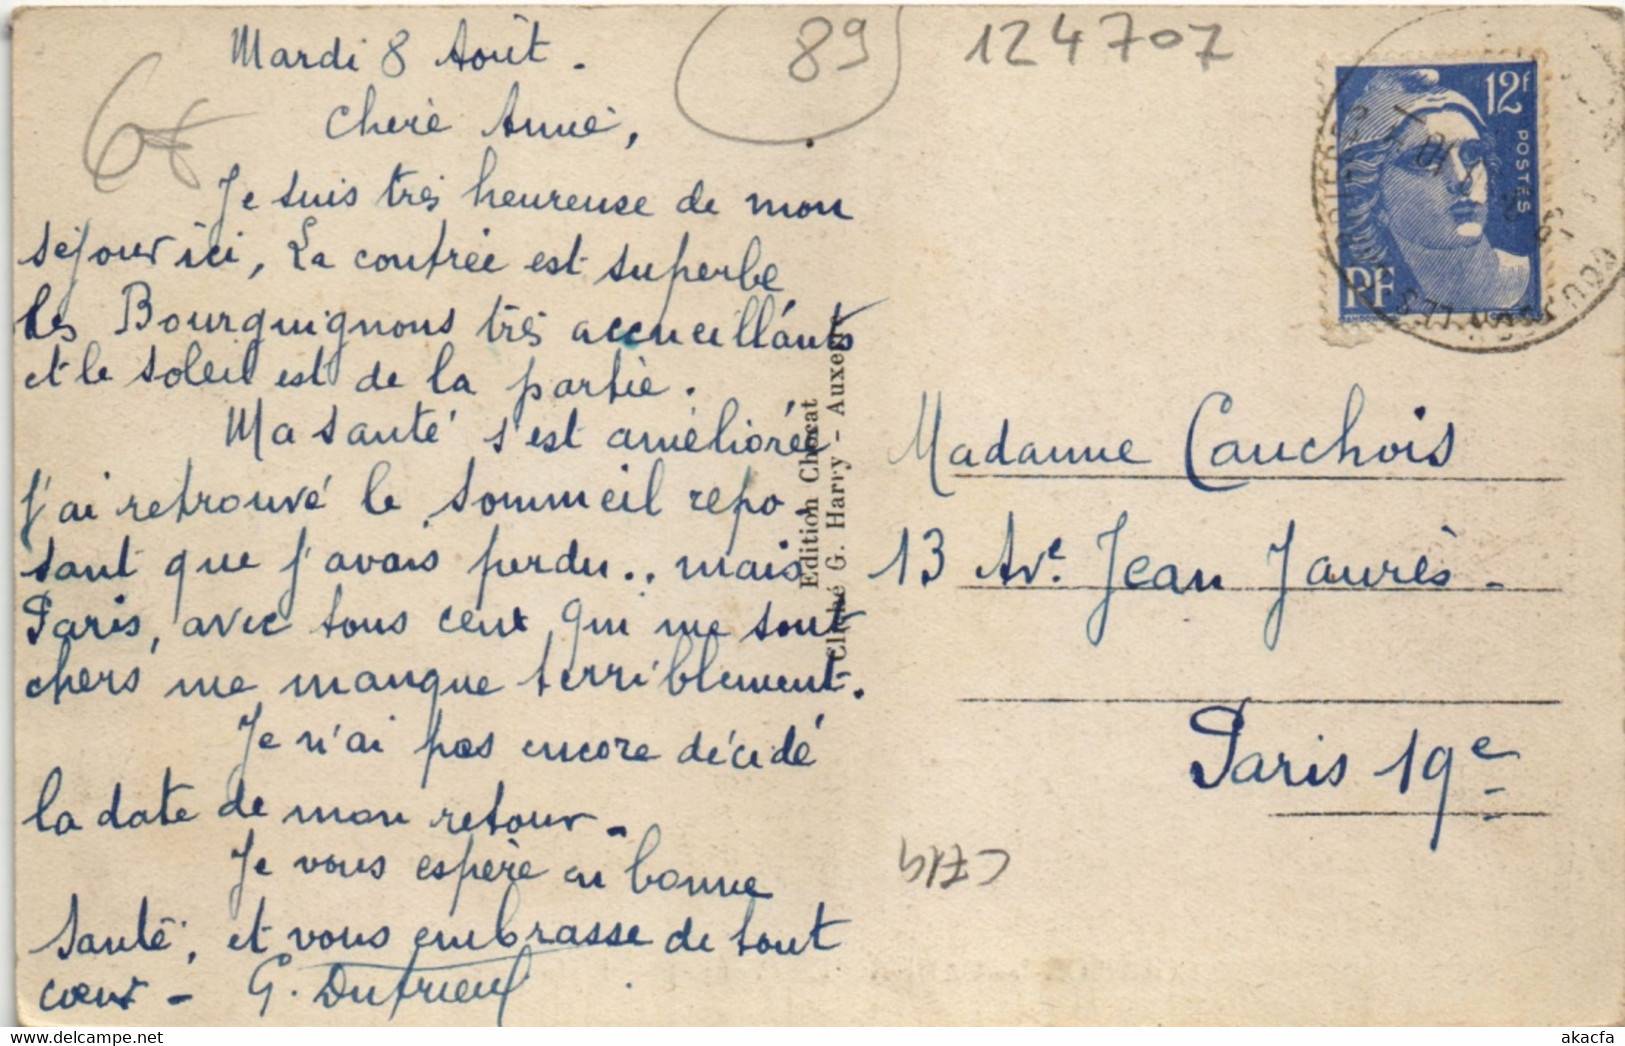 Mardi 8 Août.
Chère Annie,
Je suis très heureuse de mon
séjour ici, La contrée est superbe
les Bourguignons très accueillants
et le soleil est de la partie.
Ma santé s'est améliorée
J'ai retrouvé le sommeil repo-
sant que j'avais perdu.. mais
Paris, avec tous ceux qui me sont
chers me manque terriblement.
Je n'ai pas encore décidé
la date de mon retour.
Je vous espère en bonne
santé, et vous embrasse de tout
coeur - G. Dutrieux
89
124707
Edition Chocat
Cliché G. Harry - Auxerre
12f
POSTES
RF
Madame Cauchois
13 Ave. Jean Jaurès-
Paris 19e
C719
akacfa